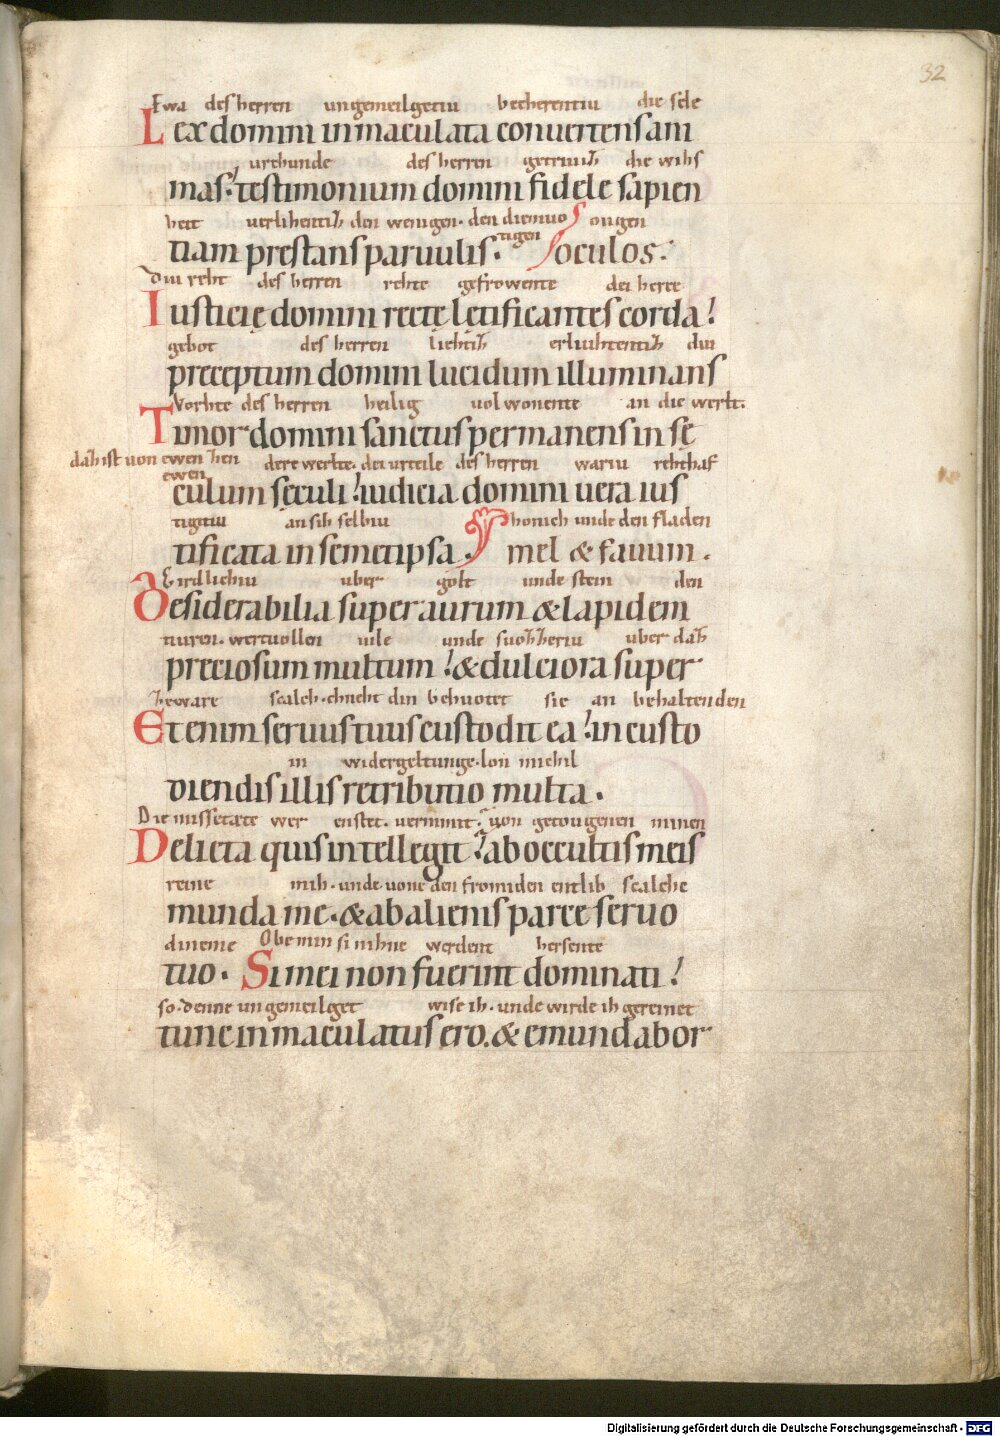 32
Ewa des herren ungemeilgetiu becherentiu die sele
Lex domini inmaculata conuertens ani
urchunde des herren getriuiz die wihs
mas. testimonium domini fidele sapien
heit uerlihentiz den wenigen. den diemuo ougen
tigen
tiam prestans paruulis. oculos.
Diu reht des herren rehte gefrowente dei herce
Iusticię domini rectę lętificantes corda!
gebot des herren liehtiz erliuhtentiz diu
preceptum domini lucidum illuminans
Vorhte des herren heilig uolwonente an die werlt.
Timor domini sanctus permanens in sę
daz ist uon ewen zen dere werlte. dei urteile des herren wariu rehthaf
ewen
culum sęculi! iudicia domini uera ius
tigitiu an sih selbiu honich unde den fladen
tificata in semetipsa. mel & fauum.
Girdlichiu uber golt unde stein den
Desiderabilia super aurum & lapidem
tiuren. wertuollen uile unde suozzeriu uber daz
preciosum multum! & dulciora super
Zeware scalch. chneht din behuotet sie an behaltenden
Etenim seruus tuus custodit ea! in custo
in widergeltunge. lon michil
diendis illis retributio multa.
Die missetate wer enstet. uernimit? uon getougenen minen
Delicta quis intellegit? ab occultis meis
reine mih. unde uone den fromiden entlib scalche
munda me. & ab alienis parce seruo
dineme Obe min si nihne werdent hersente
tuo. Si mei non fuerint dominati!
so. denne ungemeilget wise ih. unde wirde ih gereinet
tunc inmaculatus ero. & emundabor
Digitalisierung gefördert durch die Deutsche Forschungsgemeinschaft - DFG